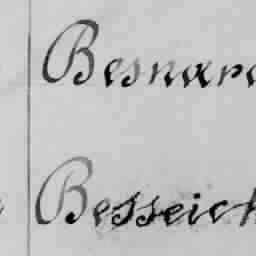 Besnard
Besseich